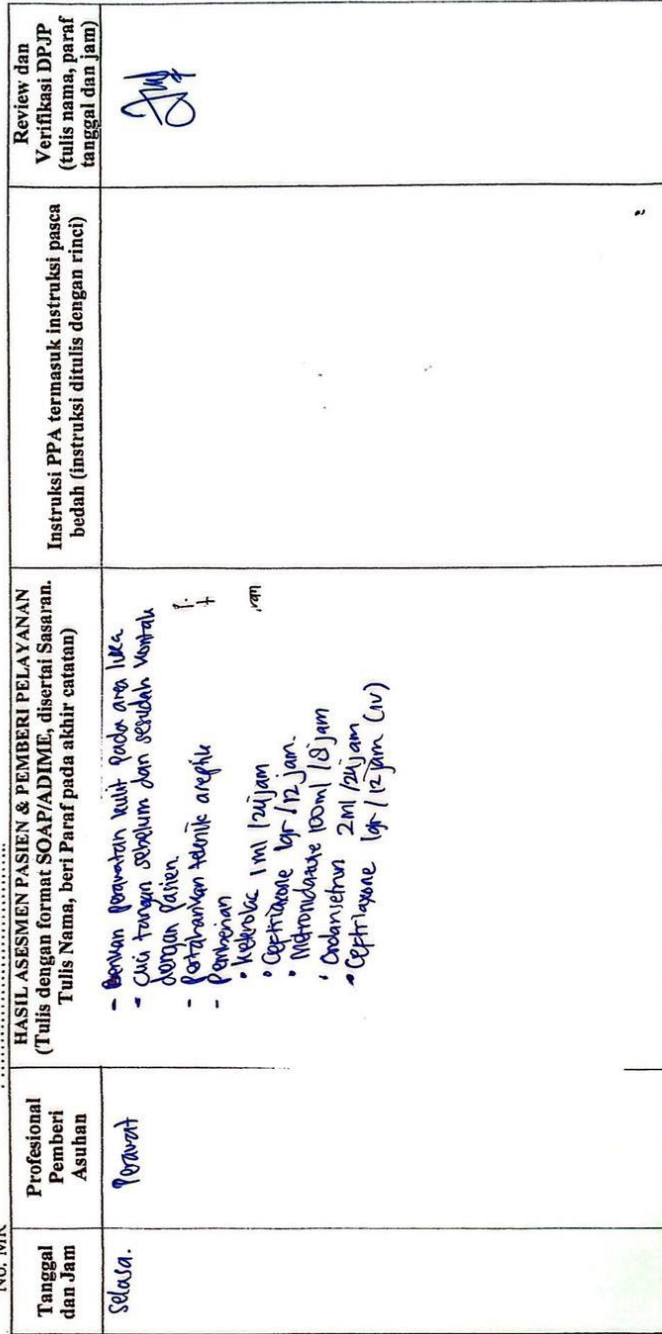 No. MR ......................
Tanggal
dan Jam
Profesional
Pemberi
Asuhan
HASIL ASESMEN PASIEN & PEMBERI PELAYANAN
(Tulis dengan format SOAP/ADIME, disertai Sasaran.
Tulis Nama, beri Paraf pada akhir catatan)
Instruksi PPA termasuk instruksi pasca
bedah (instruksi ditulis dengan rinci)
Review dan
Verifikasi DPJP
(tulis nama, paraf
tanggal dan jam)
selasa.
Perawat
- Berikan perawatan kulit pada area luka
- Cuci tangan sebelum dan sesudah kontak
dengan Pasien
- Pertahankan teknik aseptik
- Pemberian
• Ketorolac 1 ml /24 jam
• Ceftriaxone 1gr / 12 jam.
• Metronidazole 100ml / 8 jam
• Ondansetron 2 ml /24 jam
• Ceftriaxone 1gr / 12 jam (IV)